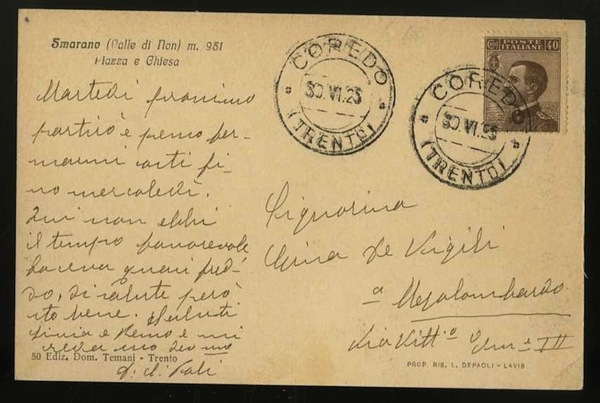 Smarano (Valle di Non) m. 951
Piazza e Chiesa
Martedì prossimo
partirò e penso fer-
marmi costì fi-
no mercoledì.
Qui non ebbi
il tempo favorevole
faceva quasi fred-
do, di salute però
sto bene. Saluti
Livia e Remo e mi
50 Ediz. Dom. Temani - Trento
COREDO
30.VI.25
(TRENTO)
COREDO
30.VI.25
(TRENTO)
POSTE ITALIANE 40
Signorina
De Vigili
a Mezolombardo
Via Vitt.o Em. III
PROP. RIS. L. DEPAOLI - LAVIS